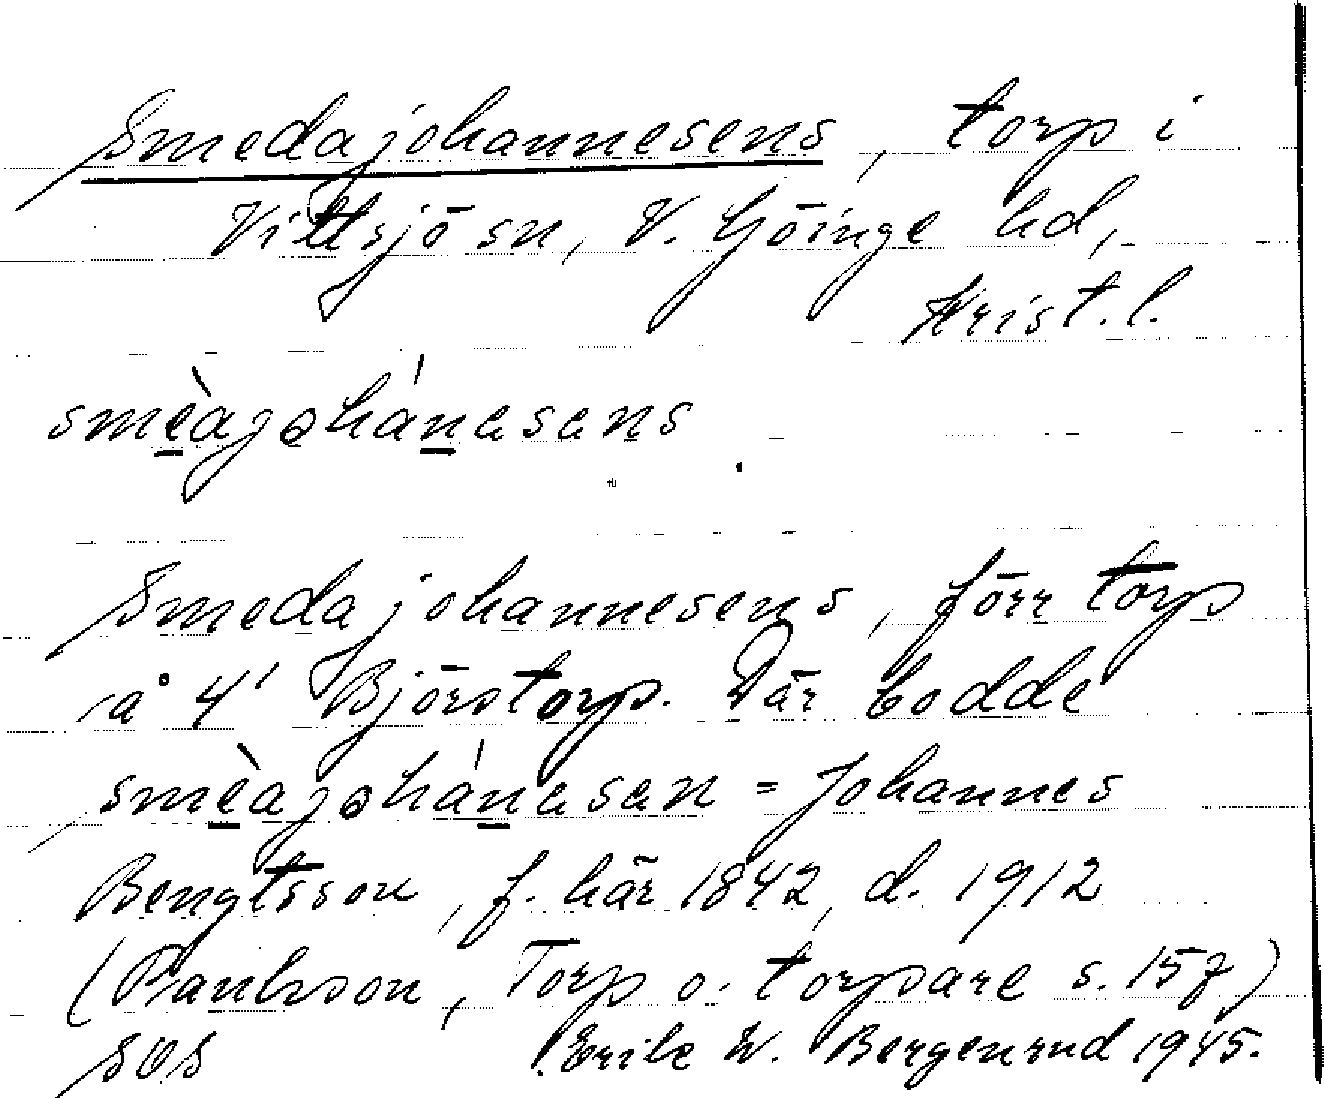 Smedajohannesens, torp i
Vittsjö sn, V. Göinge hd,
Krist. l.
smèajohánesens
Smedajohannesens, förr torp
å 4' Björstorp. Där bodde
smèajohánesen = Johannes
Bengtsson, f. här 1842, d. 1912
(Paulsson, Torp o. torpare s. 157)
SOS Erik W. Bergenrud 1945.